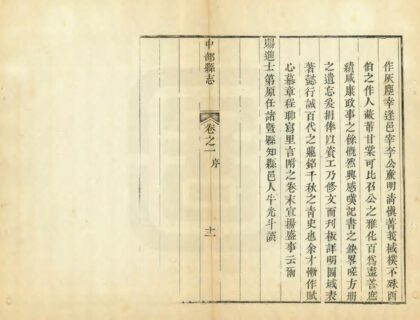 作灰塵幸逢邑宰李公廉明清慎菁莪棫樸不殊西
伯之作人蔽芾甘棠可比召公之雅化百爲盡善庶
績咸康政事之餘慨然興感嘆記書之缺畧嗟方册
之遺忘爰捐俸以資工乃修文而刋板詳明圖域表
著懿行誠百代之龜鑑千秋之青史也余才慚作賦
心慕章程聊寫里言附之卷末宣揚盛事云爾
賜進士第原任諸暨縣知縣邑人牛光斗譔
中部縣志
卷之一
序
十一